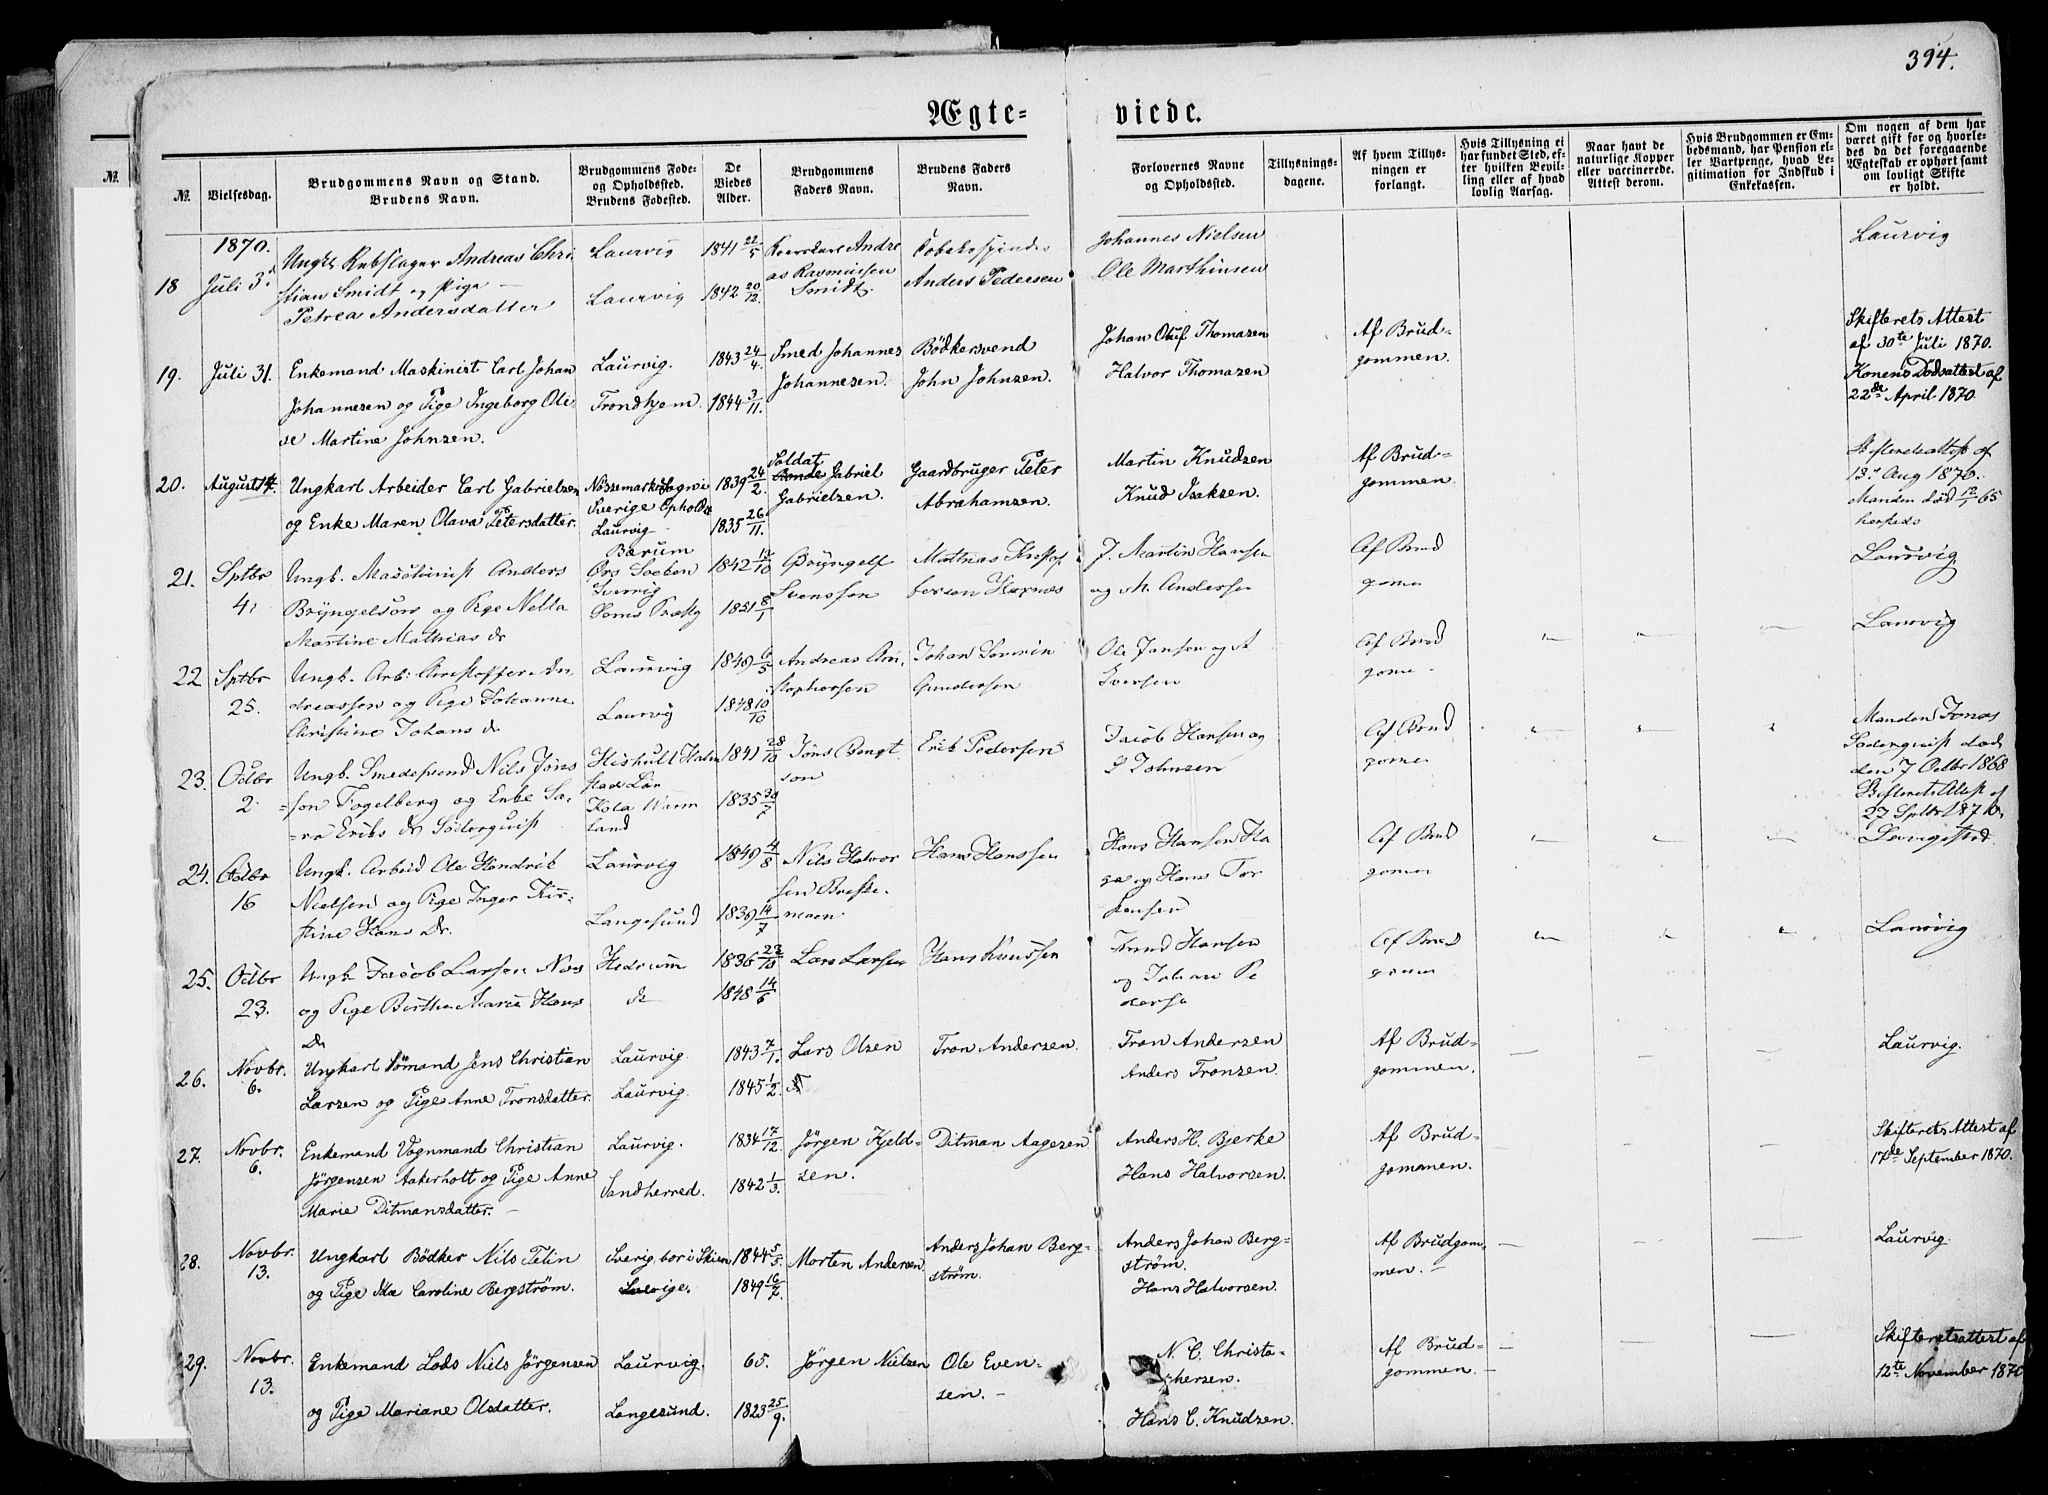 394.
Ægte- viede.
№.
№.
Vielsesdag.
Brudgommens Navn og Stand.
Brudens Navn.
Brudgommens Føde-
og Opholdssted.
Brudens Fødested.
De
Viedes
Alder.
Brudgommens
Faders Navn.
Brudens Faders
Navn.
Forlovernes Navne
og Opholdssted.
Tillysnings-
dagene.
Af hvem Tillys-
ningen er
forlangt.
Hvis Tillysning ei
har fundet Sted, ef-
ter hvilken Bevil-
ling eller af hvad
lovlig Aarsag.
Naar havt de
naturlige Kopper
eller vaccinerede.
Attest derom.
Hvis Brudgommen er Em-
bedsmand, har Pension el-
ler Vartpenge, hvad Le-
gitimation for Indskud i
Enkekassen.
Om nogen af dem har
været gift før og hvorle-
des da det foregaaende
Ægteskab er ophørt samt
om lovligt Skifte
er holdt.
1870.
18
Juli 3.
Ungk. Rebslager Andreas Chri
stian Smidt og Pige
Petrea Andersdatter
Laurvig
Laurvig
1841 22/5
1842 20/12
Andre
as Rasmussen
Smidt.
Tobaksspinder
Anders Pedersen
Johannes Nielsen
Ole Marthinsen
Laurvig
19.
Juli 31.
Enkemand Maskinist Carl Johan
Johannesen og Pige Ingeborg Oli-
se Martine Johnzen.
Laurvig.
Trondhjem.
1843 24/4
1844 3/11.
Smed Johannes
Johannesen.
Bödkersvend
John Johnzen.
Johan Oluf Thomasen
Halvor Thomasen
Af Brud-
gommen.
Skifterets Attest
af 30te Juli 1870.
Konens Dødsattest af
22de April 1870.
20.
August 14.
Ungkarl Arbeider Carl Gabrielsen
og Enke Maren Olava Petersdatter.
Nössemark Sogn i
Sverige Opholds
Laurvig
Bærum
1839 24/2.
1835 26/11.
Soldat
Gabriel
Gabrielzen.
Gaardbruger Peter
Abrahamzen.
Martin Knudzen
Knud Isakzen.
Af Brud-
gommen.
Skifteretsattest af
13. Aug 1870.
Manden død 12/7 65
hersteds
21.
Sptbr
4.
Ungk. Maschinist Anders
Bryngelsors og Pige Nella
Martine Mathias dr
Sverrig
1842 12/10
1851 8/1
Bryngelf
Svensson
Mathias Kristof
fersen
J. Martin Hansen
og A. Andersen
Af Brud
gomen
Laurvig
22
Sptbr
25.
Ungk. Arb: Christoffer An-
dreassen og Pige Johanne
Christine Johans dr
Laurvig
Laurvig
1849 6/5
1848 10/10
Andreas Chri-
stophersen
Johan Severin
Gundersen
Ole Jansen og A
Iversen
Af Brud
gome
Laurvig
23.
Octbr
2.
Ungk. Smedesvend Nils Jöns
son Fogelberg og Enke Sa-
ra Eriks dr Söderquist
Hishult Halm
stads Län
Kola Werm
land
1841 28/10
1835 30/7
Jöns Bengt
son
Erik Pedersen
Jacob Hansen og
Johnsen
Af Brud
gomen
Manden Jonas
Söderquist død
den 7 Octbr 1868
Skifterets Attest af
27 Sptbr 1870.
24.
Octbr
16
Ungk. Arbeid Ole Hendrik
Nielsen og Pige Inger Kir-
stine Hans Dr.
Laurvig
Langesund
1849 4/8
1839 14/7
Nils Halvor
sen
Hans Hanssen
Hans Hansen
og Hans Tor
kensen
Af Brud
gomen
25.
Octbr
23.
Ungk. Jacob Larsen Næs
og Pige Berthe Marie Hans
Dr
Hedrum
do
1836 23/10
1848 14/6
Lars Larsen
Hans Knudsen
Knud Hansen
og Johan Pe
dersen
Af Brud
gomen
Laurvig
26.
Novbr.
6.
Ungkarl Sømand Jens Christian
Larzen og Pige Anne Tronsdatter.
Laurvig.
Laurvig.
1843 7/1.
1845 1/2.
Lars Olzen
Tron Anderzen.
Tron Anderzen
Anders Tronzen.
Af Brud-
gommen.
Laurvig.
27.
Novbr.
6.
Enkemand Vognmand Christian
Jørgensen Aakerholt og Pige Anne
Marie Ditmansdatter.
Laurvig.
Sandherred.
1834 17/12
1842 1/3.
Jørgen Kjeld-
sen.
Ditman Aagezen
Anders H. Bjerke
Hans Halvorsen.
Af Brud-
gommen.
Skifterets Attest af
17de September 1870.
28.
Novbr.
13.
Ungkarl Bödker Nils Felin
og Pige Ida Caroline Bergström.
Sverig, bor i Skien
Sverige.
1844 5/5.
1849 16/7.
Morten Andersen
Anders Johan Berg-
ström.
Anders Johan Berg-
ström.
Hans Halvorsen.
Af Brudgom-
men.
Laurvig.
29.
Novbr.
13.
Enkemand Lods Niels Jørgensen
og Pige Mariane Olsdatter.
Laurvig.
Langesund.
65.
1823 25/9.
Jørgen Nielzen
Ole Even-
sen.
N. C. Christo-
phersen.
Hans C. Knudzen.
Af Brud-
gommen.
Skifteretsattest af
12te November 1870